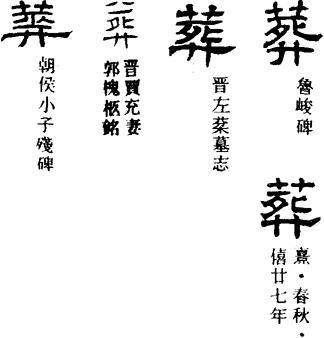 葬
魯峻碑
葬
熹·春秋·
僖廿七年
葬
晋左棻墓志
葬
晋賈充妻
郭槐柩銘
葬
朝侯小子殘碑